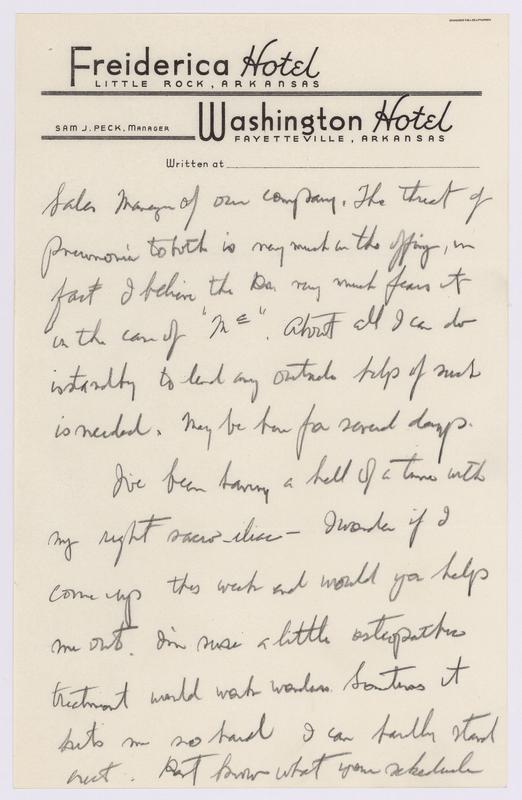 Freiderica Hotel
LITTLE ROCK, ARKANSAS
Washington Hotel
SAM J. PECK, MANAGER
FAYETTEVILLE, ARKANSAS
Written at
Sales Manager of our company. The threat of
pneumonia to both is very much in the offing, in
fact I believe the Dr. very much fears it
in the case of "Mc". About all I can do
is standby to lend any outside help if such
is needed. May be here for several days.
I've been having a hell of a time with
my right sacro-iliac — I wonder if I
come up this week end would you help
me out. I'm sure a little osteopathic
treatment would work wonders. Sometimes it
hits me so hard I can hardly stand
erect. Don't know what your schedule